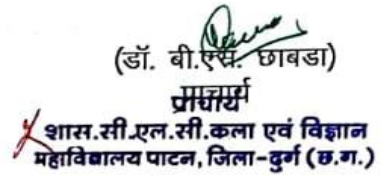 (डॉ. बी.एस. छाबडा)
प्राचार्य
प्राचार्य
शास.सी.एल.सी.कला एवं विज्ञान
महाविद्यालय पाटन, जिला-दुर्ग (छ.ग.)